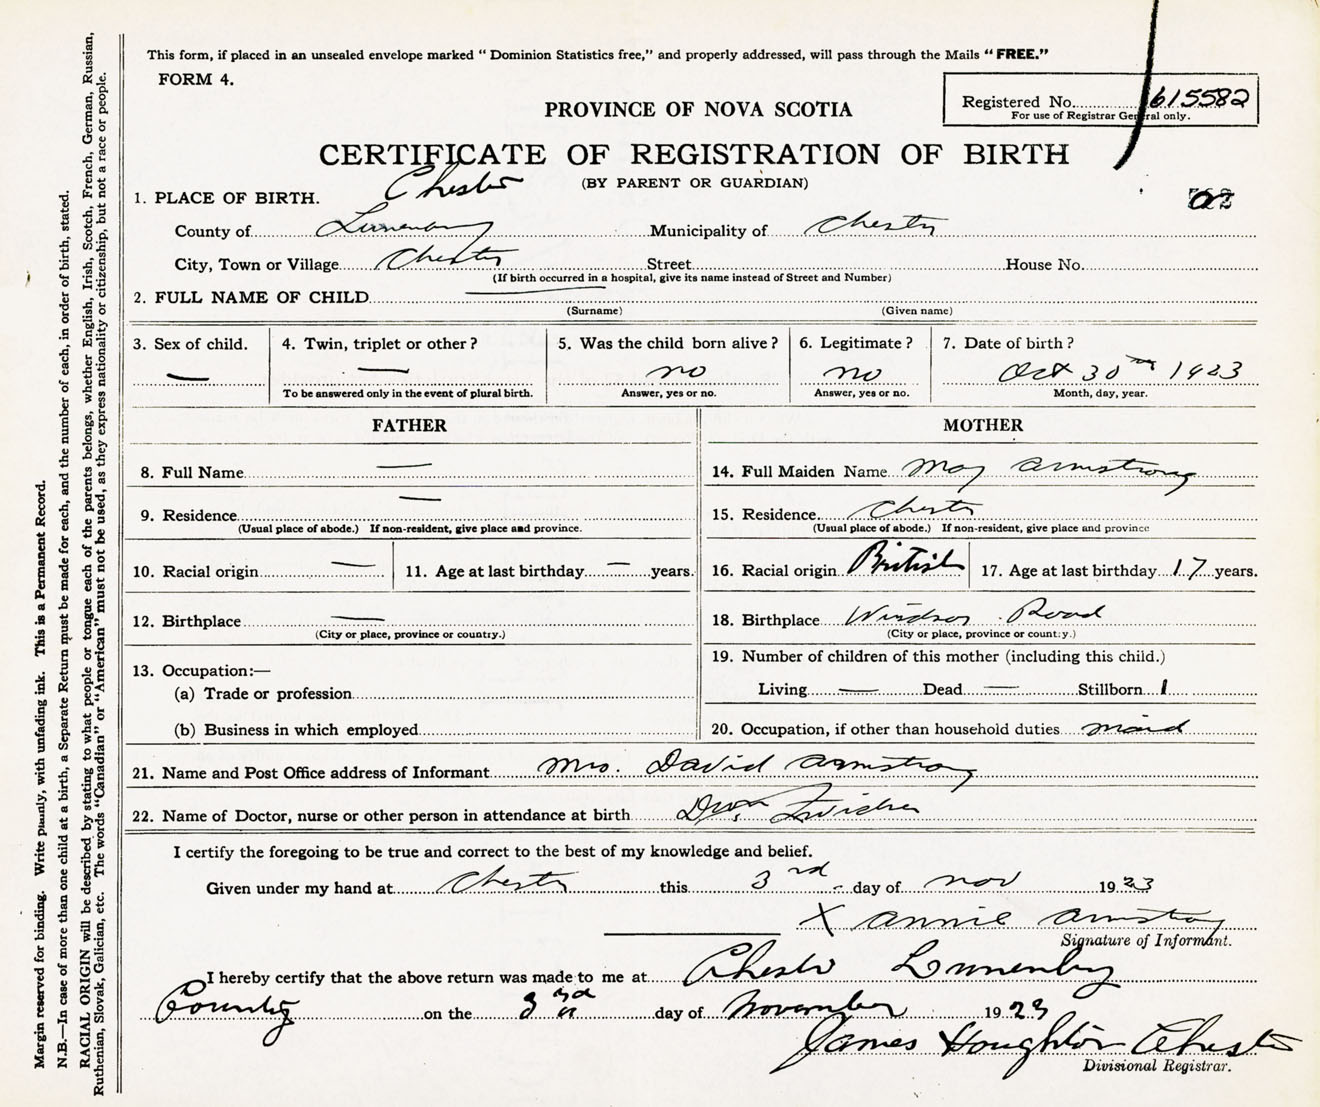 This form, if placed in an unsealed envelope marked "Dominion Statistics free," and properly addressed, will pass through the Mails "FREE."
FORM 4.
Registered No. 615582
For use of Registrar General only.
PROVINCE OF NOVA SCOTIA
CERTIFICATE OF REGISTRATION OF BIRTH
(BY PARENT OR GUARDIAN)
1. PLACE OF BIRTH. Chester
County of Lunenburg Municipality of Chester
City, Town or Village Chester Street House No.
(If birth occurred in a hospital, give its name instead of Street and Number)
2. FULL NAME OF CHILD
(Surname) (Given name)
3. Sex of child. — 4. Twin, triplet or other? — 5. Was the child born alive? no 6. Legitimate? no 7. Date of birth? Oct 30th 1923
To be answered only in the event of plural birth. Answer, yes or no. Answer, yes or no. Month, day, year.
FATHER MOTHER
8. Full Name — 14. Full Maiden Name May Armstrong
9. Residence — 15. Residence Chester
(Usual place of abode.) If non-resident, give place and province. (Usual place of abode.) If non-resident, give place and province
10. Racial origin — 11. Age at last birthday — years. 16. Racial origin British 17. Age at last birthday 17 years.
12. Birthplace — 18. Birthplace Windsor Road
(City or place, province or country.) (City or place, province or country.)
13. Occupation:— 19. Number of children of this mother (including this child.)
(a) Trade or profession Living — Dead — Stillborn 1
(b) Business in which employed 20. Occupation, if other than household duties maid
21. Name and Post Office address of Informant Mrs. David Armstrong
22. Name of Doctor, nurse or other person in attendance at birth
I certify the foregoing to be true and correct to the best of my knowledge and belief.
Given under my hand at Chester this 3rd day of Nov 1923
X Annie Armstrong
Signature of Informant.
I hereby certify that the above return was made to me at Chester Lunenburg
County on the 3rd day of November 1923
James Houghton Chester
Divisional Registrar.
Margin reserved for binding. Write plainly, with unfading ink. This is a Permanent Record.
N.B.—In case of more than one child at a birth, a Separate Return must be made for each, and the number of each, in order of birth, stated.
RACIAL ORIGIN will be described by stating to what people or tongue each of the parents belongs, whether English, Irish, Scotch, French, German, Russian,
Ruthenian, Slovak, Galician, etc. The words "Canadian" or "American" must not be used, as they express nationality or citizenship, but not a race or people.